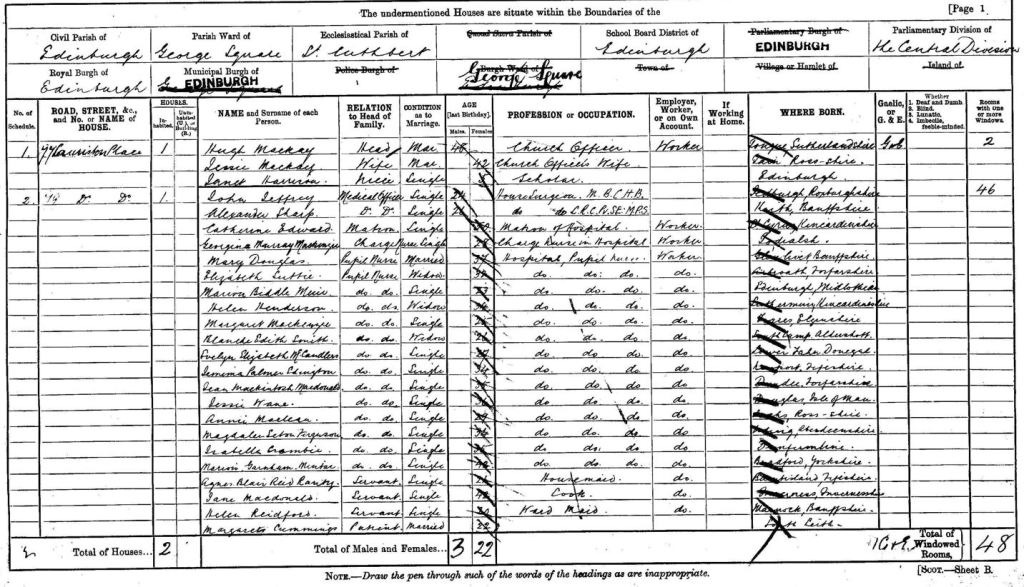 The undermentioned Houses are situate within the Boundaries of the [Page 1
Civil Parish of Edinburgh
Parish Ward of George Square
Ecclesiastical Parish of St Cuthbert
Quoad Sacra Parish of
School Board District of Edinburgh
Parliamentary Burgh of EDINBURGH
Parliamentary Division of the Central Division
Royal Burgh of Edinburgh
Municipal Burgh of EDINBURGH
Police Burgh of
Burgh Ward of George Square
Town of
Village or Hamlet of
Island of
No. of Schedule.
ROAD, STREET, &c., and No. or NAME of HOUSE.
HOUSES.
Inhabited.
Uninhabited (U.) or Building (B.)
NAME and Surname of each Person.
RELATION to Head of Family.
CONDITION as to Marriage.
AGE [last Birthday].
Males.
Females.
PROFESSION or OCCUPATION.
Employer, Worker, or on Own Account.
If Working at Home.
WHERE BORN.
Gaelic, or G. & E.
Whether 1. Deaf and Dumb. 2. Blind. 3. Lunatic. 4. Imbecile, feeble-minded.
Rooms with one or more Windows.
1. 77 Lauriston Place 1 Hugh Mackay Head Mar. 48 Church Officer Worker Tongue Sutherlandshire G&E 2
Jessie Mackay Wife Mar. 42 Church Officer's Wife Tain Ross-shire.
Janet Harrison Niece Single Scholar Edinburgh.
2. 79 Do Do 1. John Jeffrey Medical Officer Single 24 House Surgeon M.B.C.H.B. Roxburghshire 46
Alexander Sharp D. D. Single do do L.R.C.P.&S.E. M.P.S. Keith, Banffshire.
Catherine Edward Matron Single Matron of Hospital. Worker. St Cyrus, Kincardineshire
Georgina Murray Mackenzie Charge Nurse Single Charge Nurse in Hospital Worker Lochalsh.
Mary Douglas Pupil Nurse Married Hospital, Pupil Nurse Worker Glenlivet Banffshire.
Elizabeth Suttie. Pupil Nurse Widow do. do. do. do. Arbroath, Forfarshire
Marion Biddle Muir do. do. Single do. do. do. do. Edinburgh, Midlothian
Helen Henderson do. do. Widow do. do. do. do. Kincardineshire
Margaret Mackenzie do. do. Single do. do. do. do. Forres, Elginshire
Blanche Edith Smith do. do. Widow do. do. do. do. Aldershott.
Evelyn Elizabeth McCandless do. do. Single do. do. do. do. Lower Fahn Donegal.
Jemima Palmer Edington do. do. Single do. do. do. do. Newport, Fifeshire.
Jean Mackintosh Macdonald do. do. Single do. do. do. do. Dundee, Forfarshire
Jessie Wane. do. do. Single do. do. do. do. Douglas, Isle of Man.
Annie Maclean. do. do. Single do. do. do. do. Ross-shire.
Magdalen Seton Ferguson do. do. Single do. do. do. do. Aberdeenshire
Isabella Crombie do. do. Single do. do. do. do. Dunfermline.
Marion Garnham do. do. Single do. do. do. do. Bradford, Yorkshire.
Agnes Blair Reid Servant. Single Housemaid. do. Burntisland Fifeshire
Jane Macdonald. Servant. Single Cook do. Inverness, Inverness-shire
Helen Reidford. Servant. Single Ward Maid do. Banffshire.
Margaret Cummings Patient. Married 22 Leith.
2 Total of Houses... 2 Total of Males and Females... 3 22 1G&E Total of Windowed Rooms, 48
NOTE.—Draw the pen through such of the words of the headings as are inappropriate. [SCOT.—Sheet B.